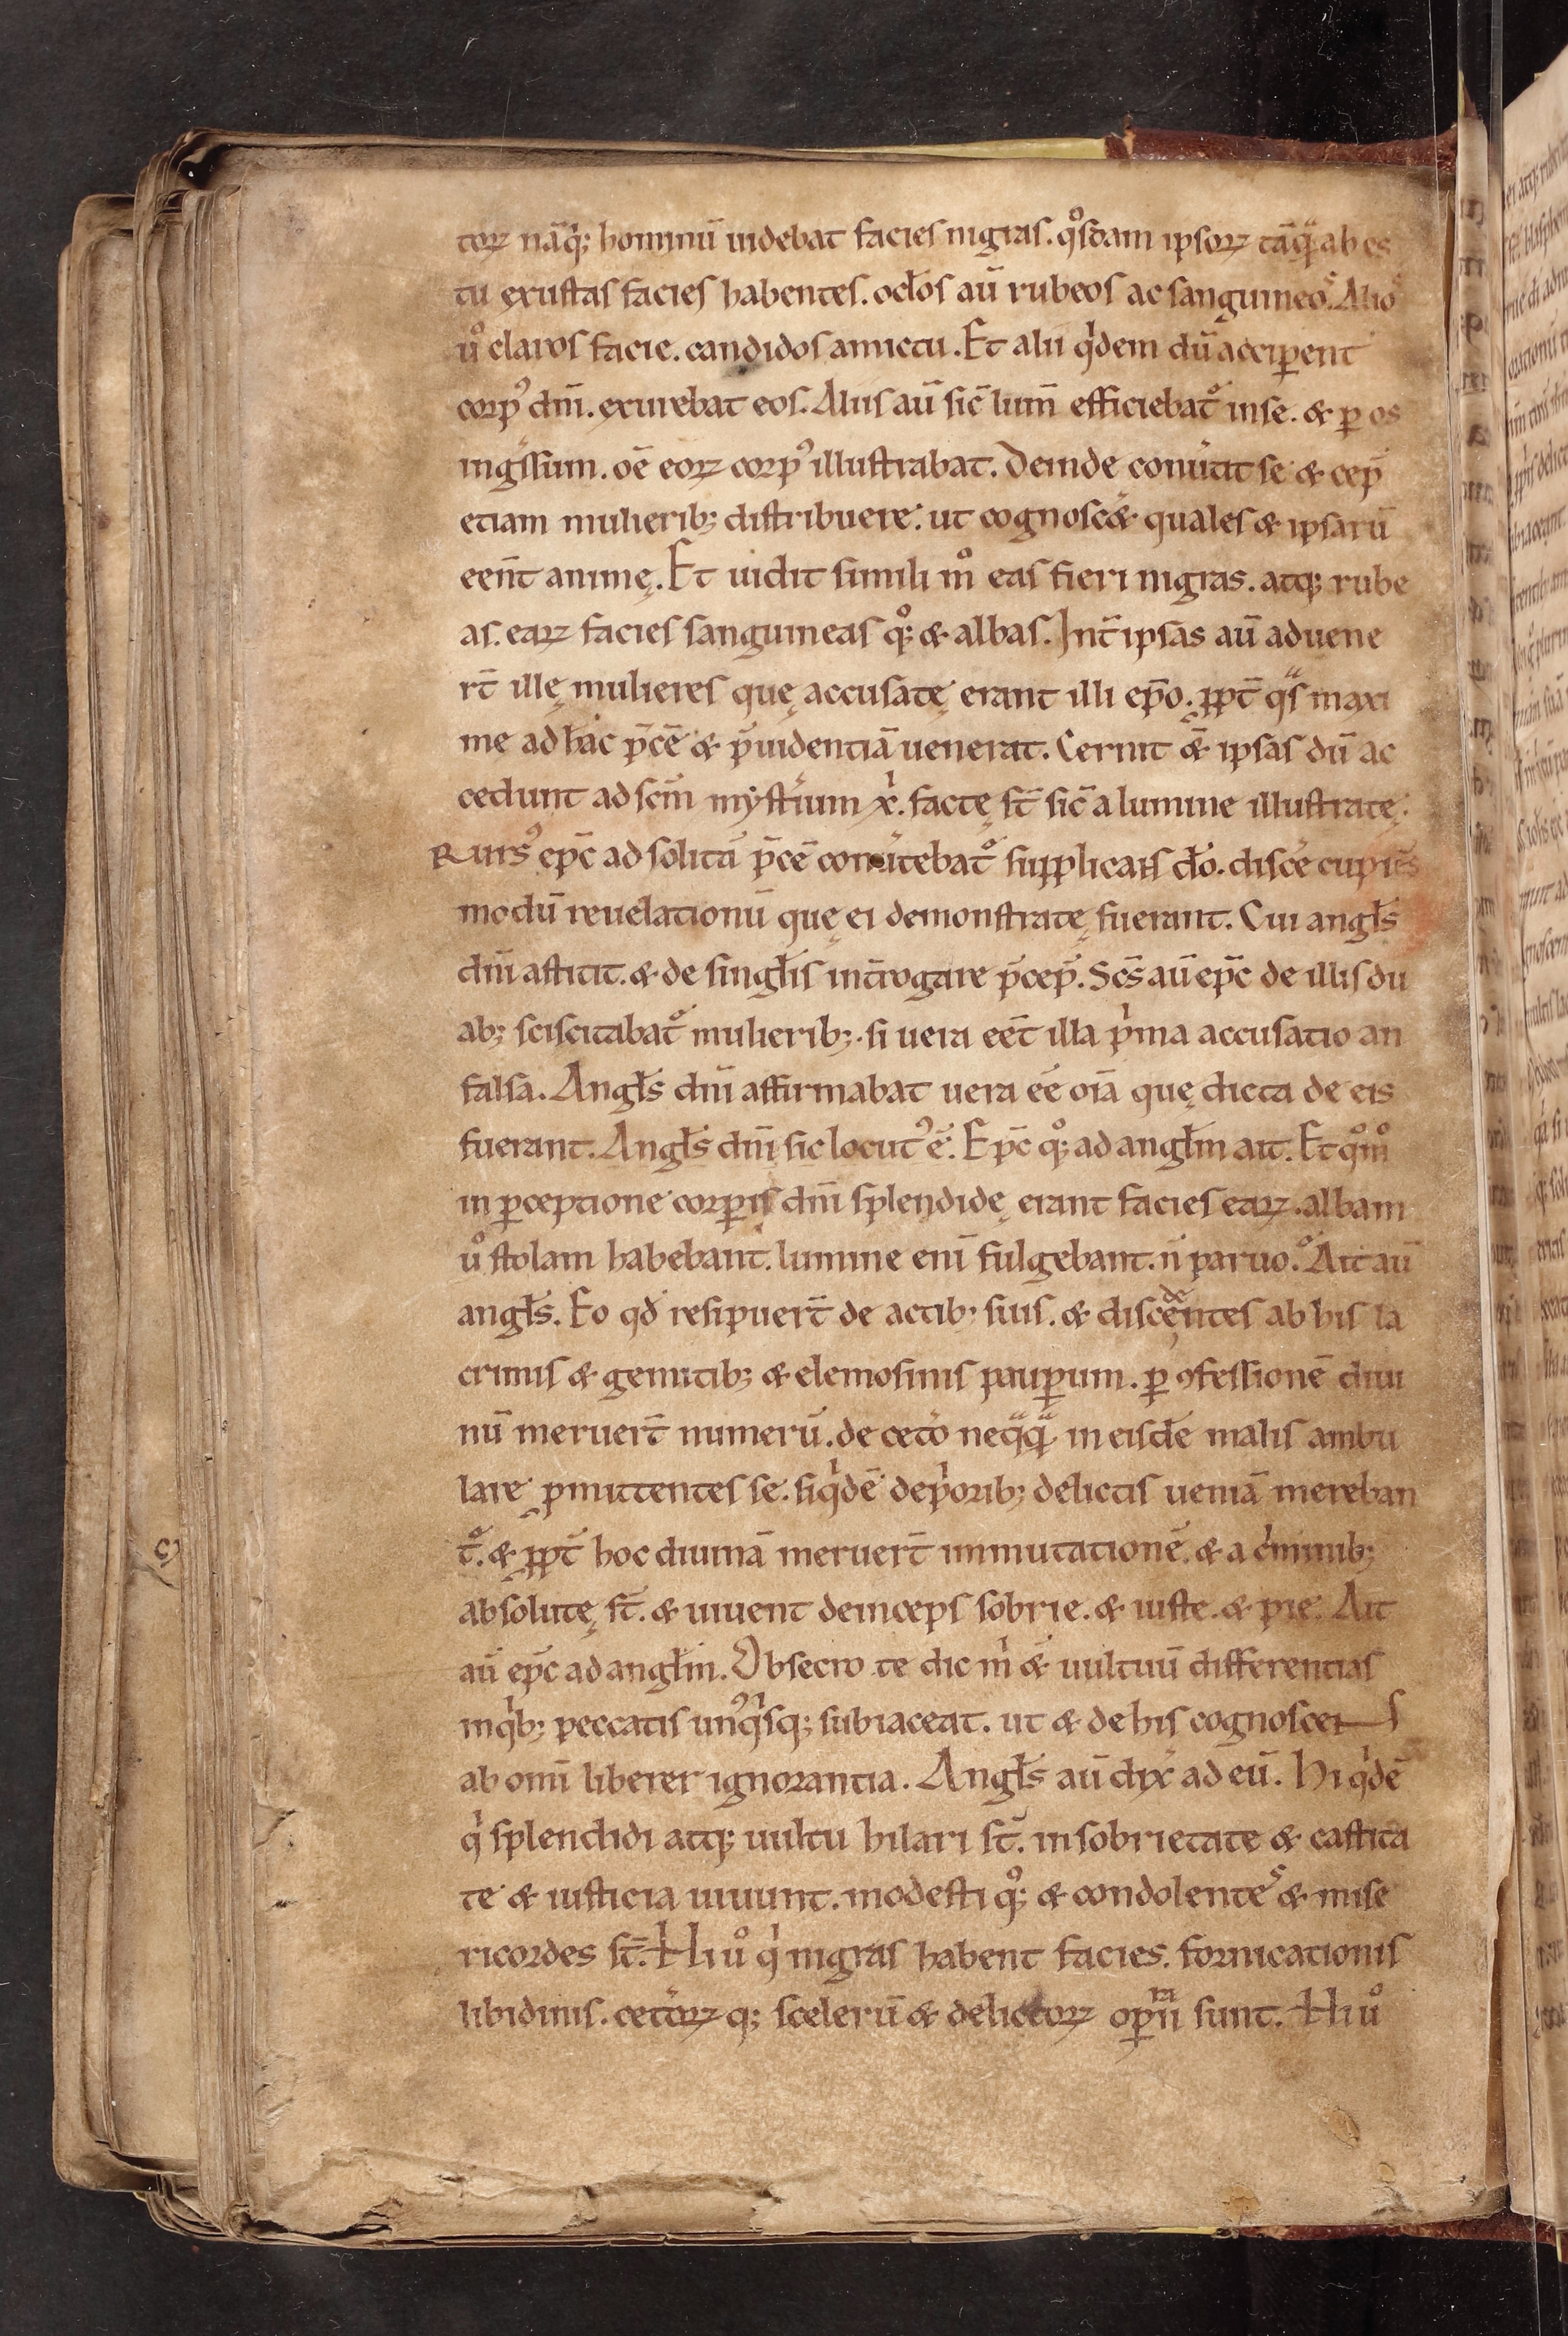 torꝝ nāq̄; hominū uidebat facies nigras. qͦsdam ipsoꝝ tāqͣ̄ ab es
tu exustas facies habentes. oclos aū rubeos ac sanguineoˢ. Alioˢ
uͦ claros facie. candidos amictu. Et alii qͥdem dū acciꝑent
corpꝰ dnī. exurebat eos. Aliis aū sic̄ lum̄ efficiebatͦ inse. & ꝑ os
ingͤssum. oē eoꝝ corpꝰ illustrabat. Deinde conuͥtit se & cep̄
etiam mulierib; distribuere. ut cognoscͤ& quales & ipsarū
een̄t animę. Et uidit simili mͦ eas fieri nigras. atq; rube
as. eaꝝ facies sanguineas qͦ; & albas. Int̄ ipsas aū aduene
rt̄ illę mulieres quę accusatę erant illi ep̄o. ꝓpt̄ qͣs maxi
me ad hāc p̄cē & p̄uidentiā uenerat. Cernit &̄ ipsas dū ac
cedunt ad scm̄ mẏstͥium xͥ. factę st̄ sic̄ a lumine illustratę.
Rursꝰ ep̄c ad solitā p̄cē conuͥtebatͦ supplicans dō. disce̓ cupiēs
modū reuelationū quę ei demonstratę fuerant. Cui angłs
dnī astitit. & de singłis int̄rogare p̄cep̄. Scs̄ aū ep̄c de illis du
ab; sciscitabatͦ mulierib;. si uera eet̄ illa pͥma accusatio an
falsa. Angłs dnī affirmabat uera eē oīa quę dicta de eis
fuerant. Angłs dnī sic locutꝰ ē. Ep̄c qͦ; ad angłm ait. Et qͦmͦ
in ꝑceptione corꝑis dnī splendidę erant facies eaꝝ. albam
uͦ stolam habebant. lumine enī fulgebant. n̄ paruo. Ait aū
angłs. Eo qd̄ resipuert̄ de actib; suis. & discedentes ab his la
crimis & gemitib; & elemosinis pauꝑum. ꝑ ꝯfessionē diui
nū meruert̄ numerū. de cetͦo neqͣqͣ̄ in eisdē malis ambu
lare ꝓmittentes se. siqͥdē de pͥorib; delictis ueniā mereban
tͦ. & ꝓpt̄ hoc diuinā meruert̄ inmutationē. & a cͥminib;
absolutę st̄. & uiuent deinceps sobrie. & iuste. & pie. Ait
aū ep̄c ad angłm. Obsecro te dic mͥ &̄ uultuū differentias
in qͥb; peccatis unꝰqͥsq; subiaceat. ut & de his cognoscens
ab omī liberer ignorantia. Angłs aū dix̄ ad eū. Hi qͥdē
qͥ splendidi atq; uultu hilari st̄. in sobrietate & castita
te & iusticia uiuunt. modesti qͦ; & condolenteˢ & mise
ricordes st̄. Hi uͦ qͥ nigras habent facies. fornicationis
libidinis. cetͦoꝝ q; scelerū & delictoꝝ oꝑarii sunt. Hi uͦ